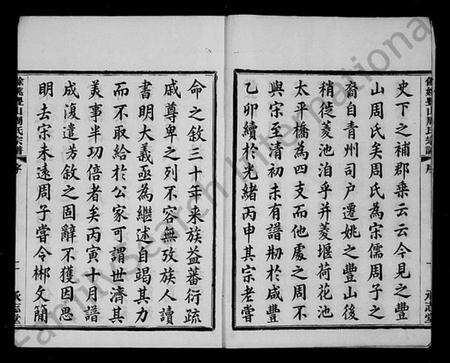 史下之補郡乘云云今見之豐
山周氏矣周氏為宋儒周子之
裔自青州司戶遷姚之豐山後
稍徙菱池泊乎井菱堰荷花池
太平橋為四支而他處之周不
與宗至清初未有譜剏於咸豐
乙卯續於光緒丙申其宗老嘗
餘姚豐山周氏宗譜
序
一
承志堂
命之敘三十年來族益蕃衍疏
戚尊卑之列不容無攷族人讀
書明大義亟為繼述自竭其力
而不取給於公家可謂世濟其
美事半功倍者矣丙寅十月譜
成復遣芳敘之固辭不獲因思
明去宋未遠周子嘗令郴文簡
餘姚豐山周氏宗譜
序
承志堂
FamilySearch International